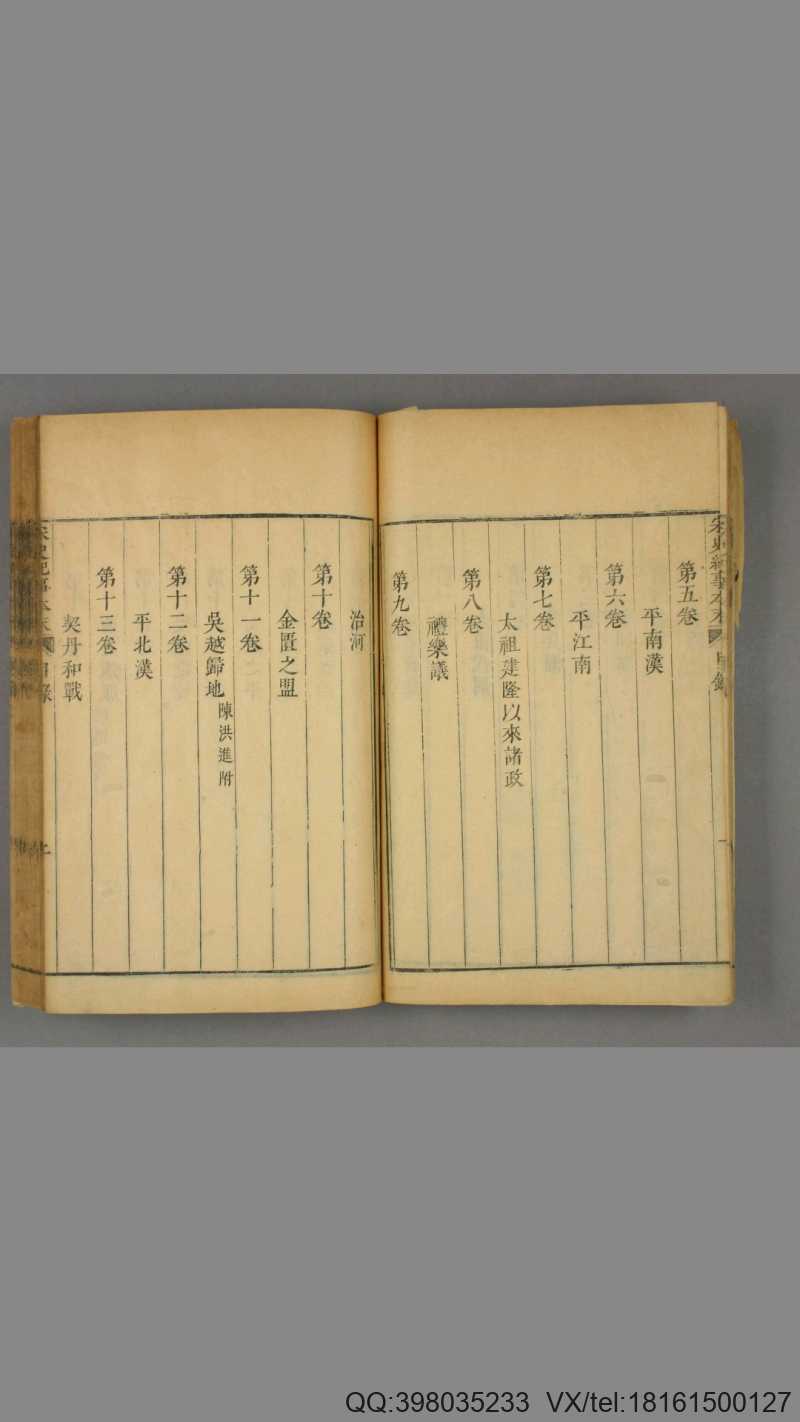 宋史紀事本末 目錄
第五卷
平南漢
第六卷
平江南
第七卷
太祖建隆以來諸政
第八卷
禮樂議
第九卷
治河
第十卷
金匱之盟
第十一卷
吳越歸地 陳洪進附
第十二卷
平北漢
第十三卷
契丹和戰
宋史紀事本末 目錄
QQ:398035233 VX/tel:18161500127